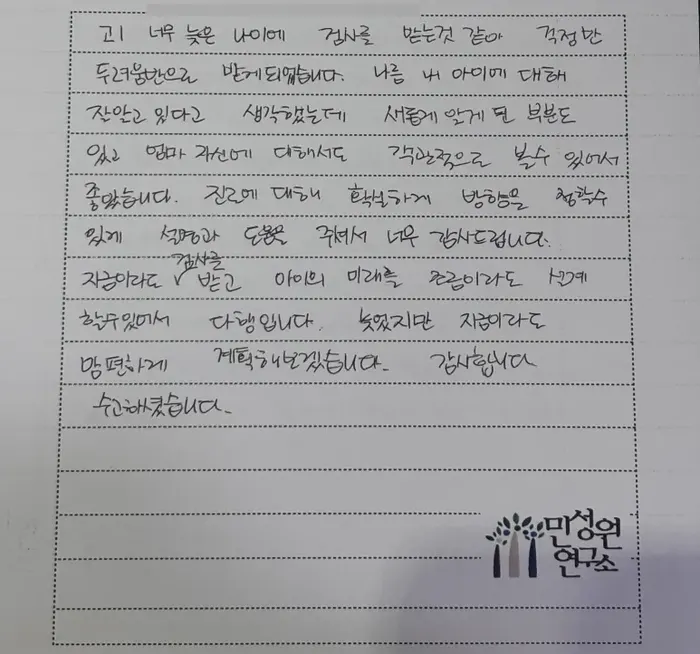 고1 너무 늦은 나이에 검사를 받는것 같아 걱정반
두려움반으로 받게되었습니다. 나름 내 아이에 대해
잘알고 있다고 생각했는데 새롭게 알게 된 부분도
있고 엄마 자신에 대해서도 객관적으로 볼수 있어서
좋았습니다. 진로에 대해 확실하게 방향을 정할수
있게 설명과 도움을 주셔서 너무 감사드립니다.
지금이라도 검사를 받고 아이의 미래를 조금이라도 설계
할수있어서 다행입니다. 늦었지만 지금이라도
맘편하게 계획해보겠습니다. 감사합니다
수고하셨습니다.
민성원
연구소